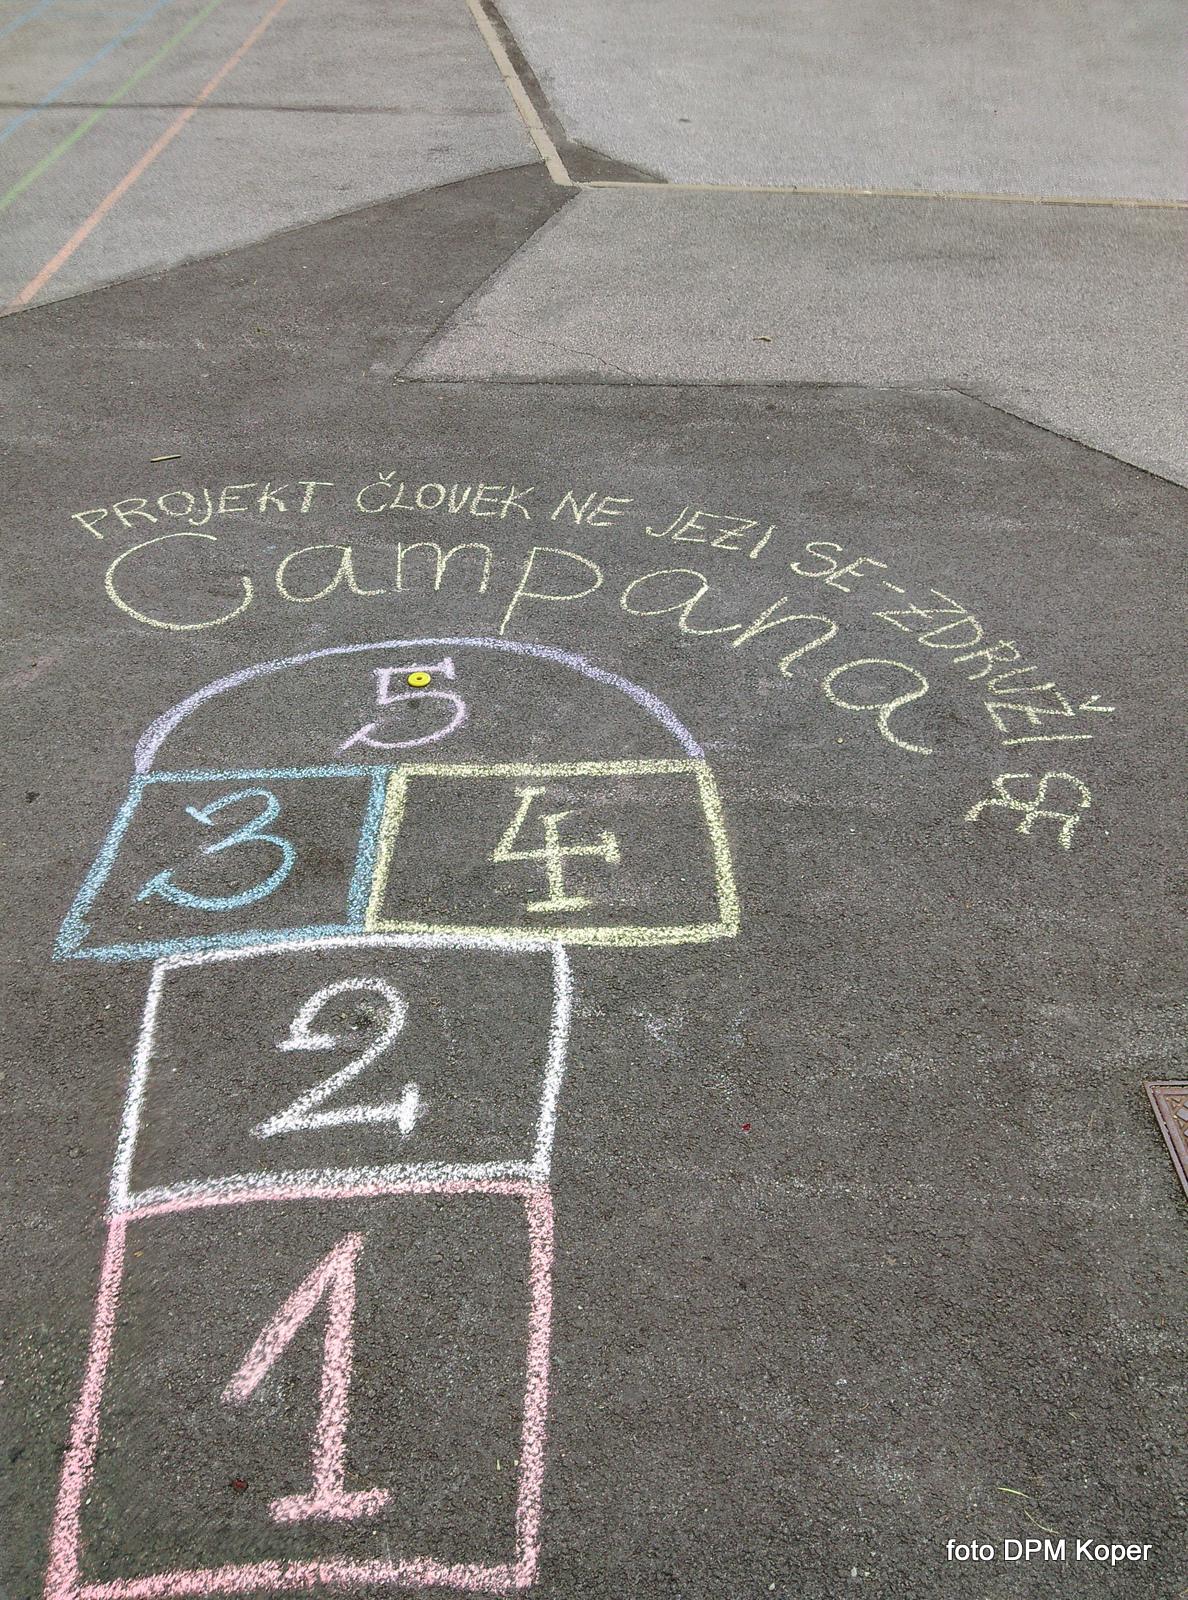 PROJEKT ČLOVEK NE JEZI SE-ZDRUŽI SE
Campana
5
3 4
2
1
foto DPM Koper